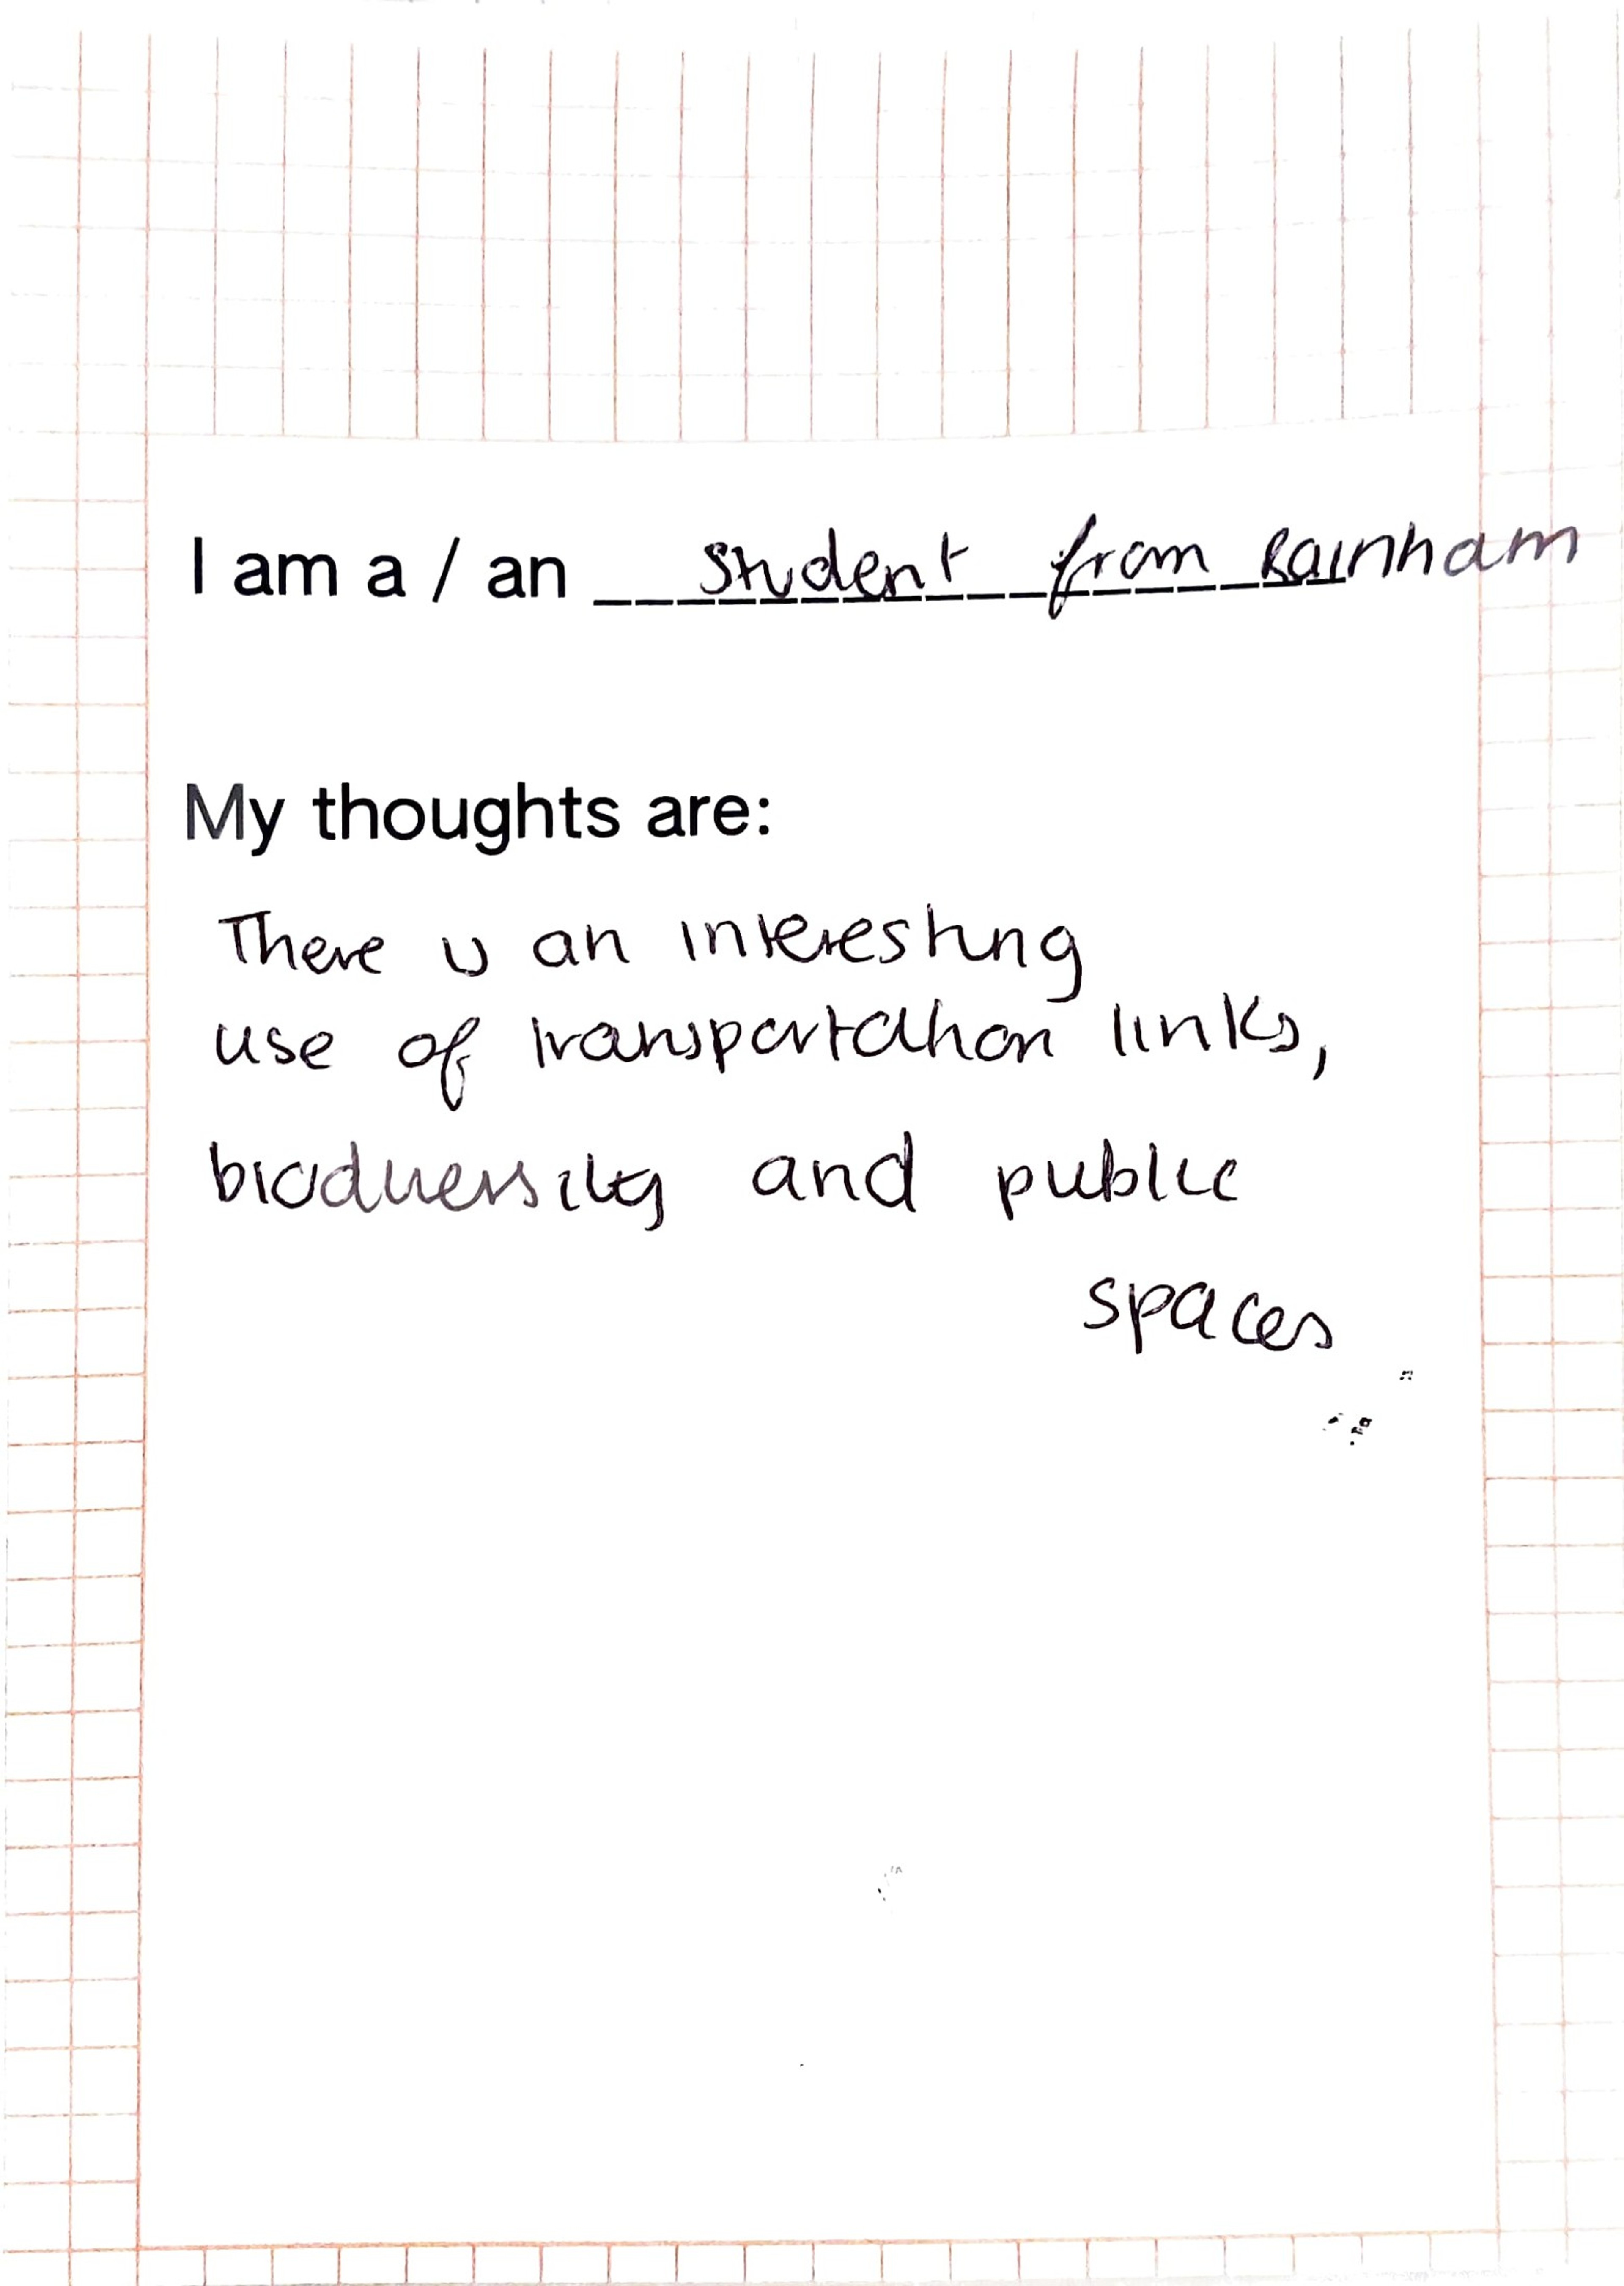 I am a / an student from Rainham
My thoughts are:
There is an interesting
use of transportation links,
biodiversity and public
spaces